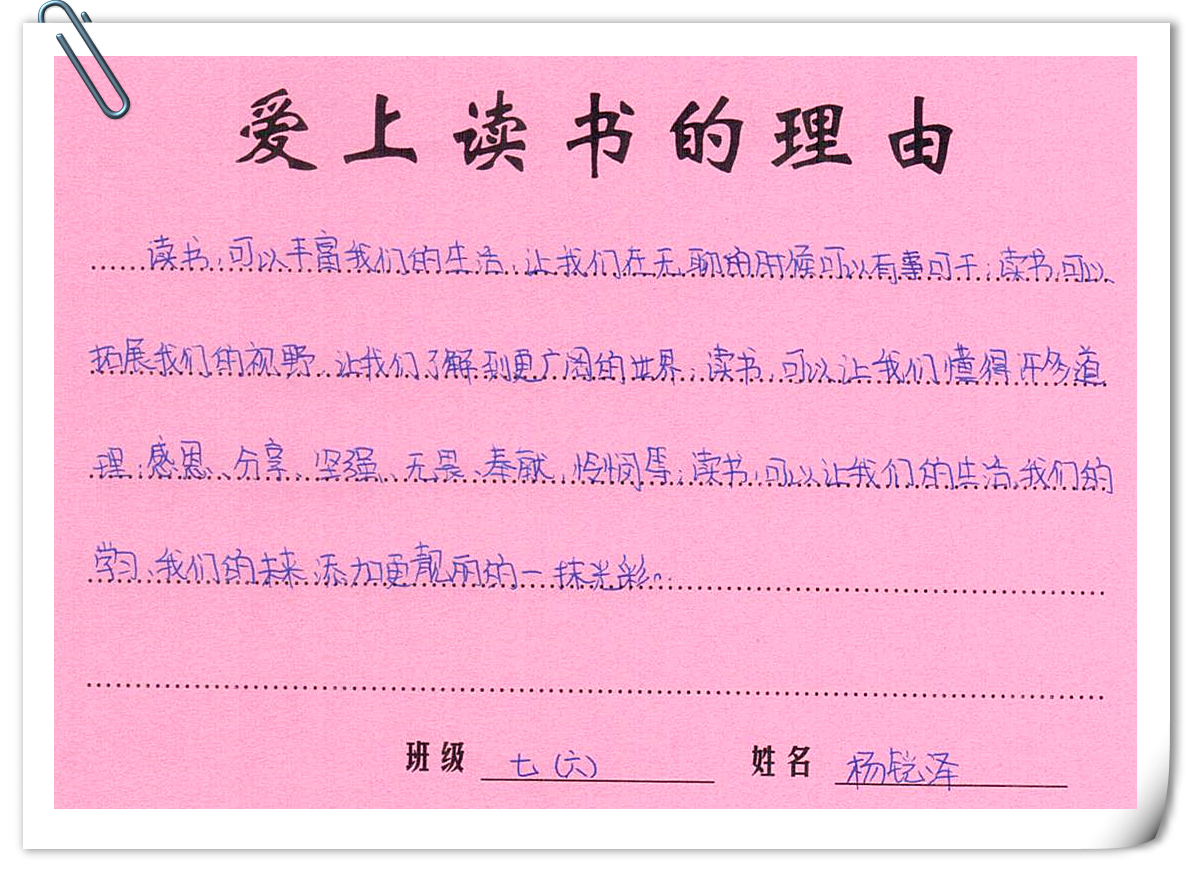 爱上读书的理由
读书,可以丰富我们的生活,让我们在无聊的时候可以有事可干;读书,可以
拓展我们的视野,让我们了解到更广阔的世界;读书,可以让我们懂得许多道
理;感恩、分享、坚强、无畏、奉献,怜悯等;读书,可以让我们的生活、我们的
学习、我们的未来,添加更靓丽的一抹光彩。
班级 七(六) 姓名 杨锐泽